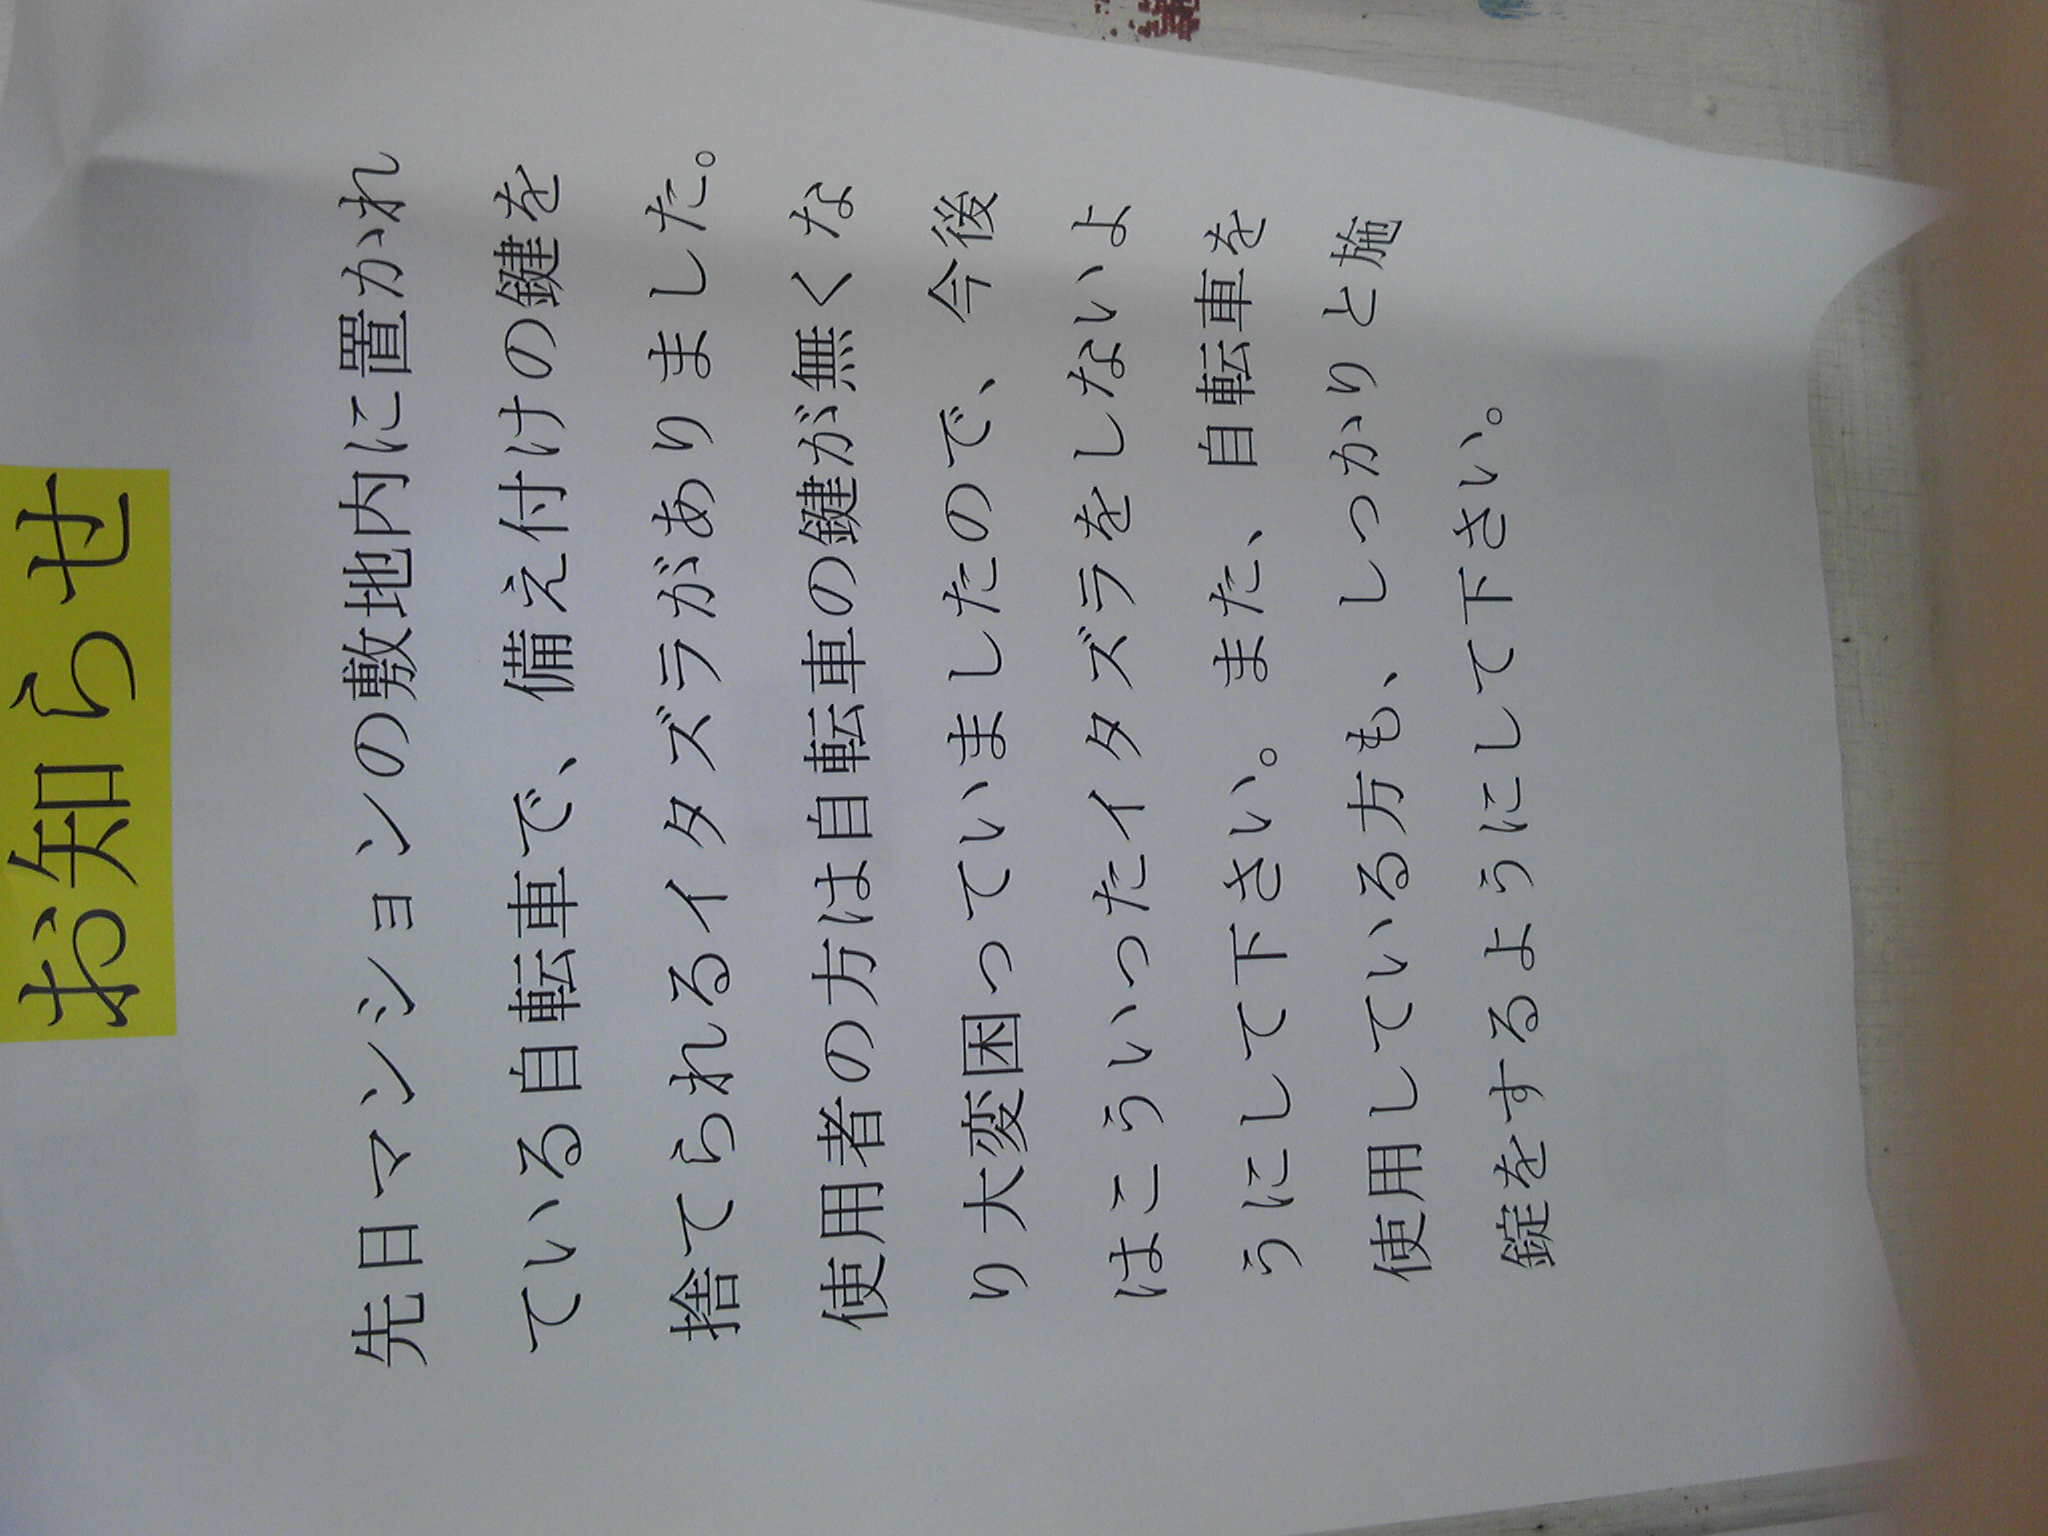 お知らせ
先日マンションの敷地内に置かれ
ている自転車で、備え付けの鍵を
捨てられるイタズラがありました。
使用者の方は自転車の鍵が無くな
り大変困っていましたので、今後
はこういったイタズラをしないよ
うにして下さい。また、自転車を
使用している方も、しっかりと施
錠をするようにして下さい。